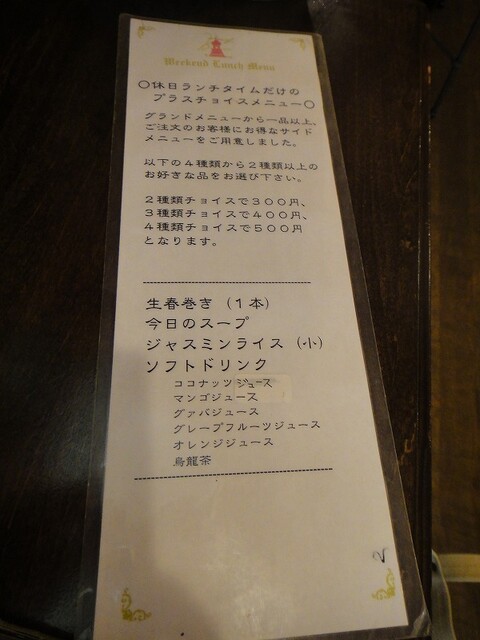 Weekend Lunch Menu
○休日ランチタイムだけの
プラスチョイスメニュー○
グランドメニューから一品以上、
ご注文のお客様にお得なサイド
メニューをご用意しました。
以下の4種類から2種類以上の
お好きな品をお選び下さい。
2種類チョイスで300円、
3種類チョイスで400円、
4種類チョイスで500円
となります。
生春巻き（1本）
今日のスープ
ジャスミンライス（小）
ソフトドリンク
ココナッツジュース
マンゴジュース
グァバジュース
グレープフルーツジュース
オレンジジュース
烏龍茶